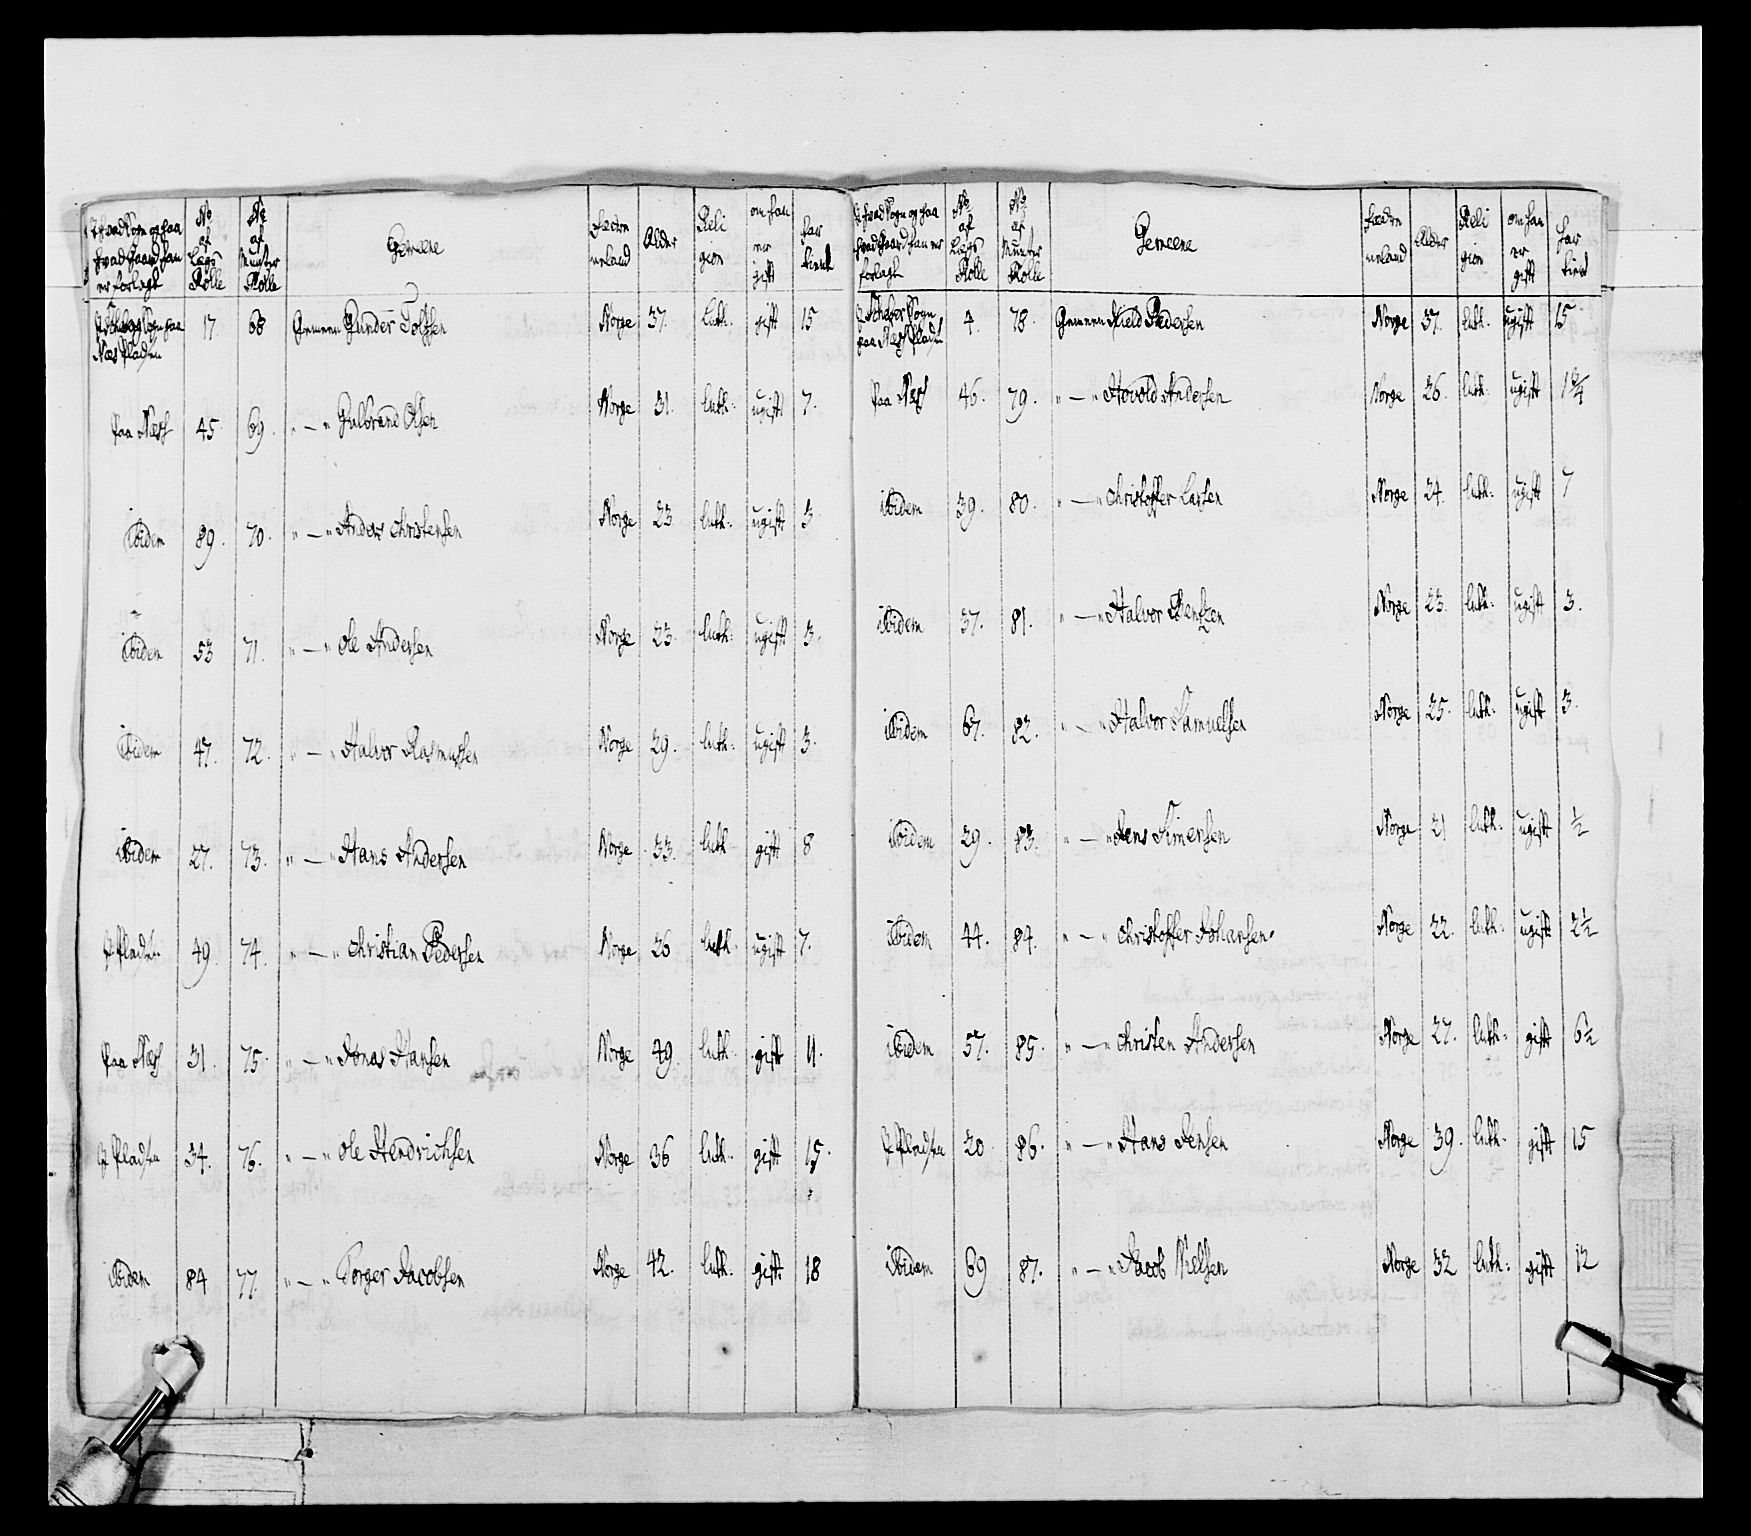 No af Lægs Rolle
No af Munster Rolle
Gemeene
Alder
Religion
om han er gift
har tient
17. 68 Gemeen Gunder Tolfsen Norge 37. luth. gift 15
Paa Næss 45 69 " — " Gulbrand Olsen Norge 31. luth. ugift 7.
ibidem 89. 70. " — " Anders Christensen Norge 23 luth. ugift 3.
ibidem 53 71. " — " Ole Andersen Norge 23. luth. ugift 3.
ibidem 47. 72. " — " Halvor Rasmussen Norge 29. luth. ugift 3.
ibidem 27. 73. " — " Hans Andersen Norge 33. luth gift 8
49 74. " — " Christian Pedersen Norge 26 luth. ugift 7.
Paa Næss 31. 75. " — " Jonas Hansen Norge 49. luth. gift 11.
34. 76. " — " Ole Hendrichsen Norge 36 luth. gift 15.
ibidem 84 77. " — " Torger Jacobsen Norge 42. luth. gift. 18
No af Lægs Rolle
No af Munster Rolle
Gemeene
Alder
Religion
om han er gift
har tient
4. 78. Gemeen Kield Pedersen Norge 37. luth. ugift 15
Paa Næss 46. 79. " — " Hovold Andersen Norge 26. luth. ugift
ibidem 39. 80. " — " Christoffer Larsen Norge 24. luth. ugift 7
ibidem 37. 81. " — " Halvor Bentzen Norge 23. luth. ugift 3.
ibidem 67. 82. " — " Halvor Samuelsen Norge 25. luth. ugift 3.
ibidem 29. 83. " — " Jens Simensen Norge 21 luth. ugift ½
ibidem 44. 84. " — " Christoffer Johansen Norge 22. luth. ugift 2½
ibidem 57. 85. " — " Christen Andersen Norge 27. luth. gift 6½
20. 86. " — " Hans Jensen Norge 39. luth. gift 15
ibidem 69 87. " — " Jacob Nielsen Norge 32 luth. gift 12